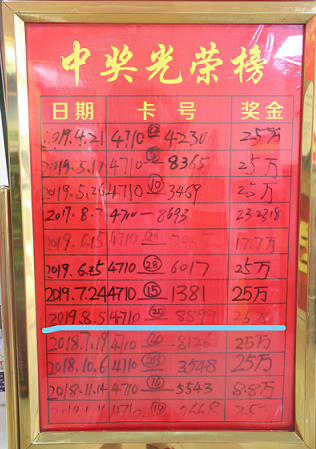 中奖光荣榜
日期 卡号 奖金
2019.4.21 4710 4230 25万
2019.5.17 4710 8365 25万
2019.5.26 4710 ⑩ 3469 25万
2017.8.7 4710 — 8693 232318
2019.6.15 4710 17.7万
2019.6.25 4710 ㉘ 6017 25万
2019.7.24 4710 ⑮ 1381 25万
2019.8.5 4710 8599 25万
2018.7.19 4710 8126 25万
2018.10.6 4710 ㉘ 3548 25万
2018.11.14 4710 ⑯ 5543 8.8万
4710 ⑲ 25